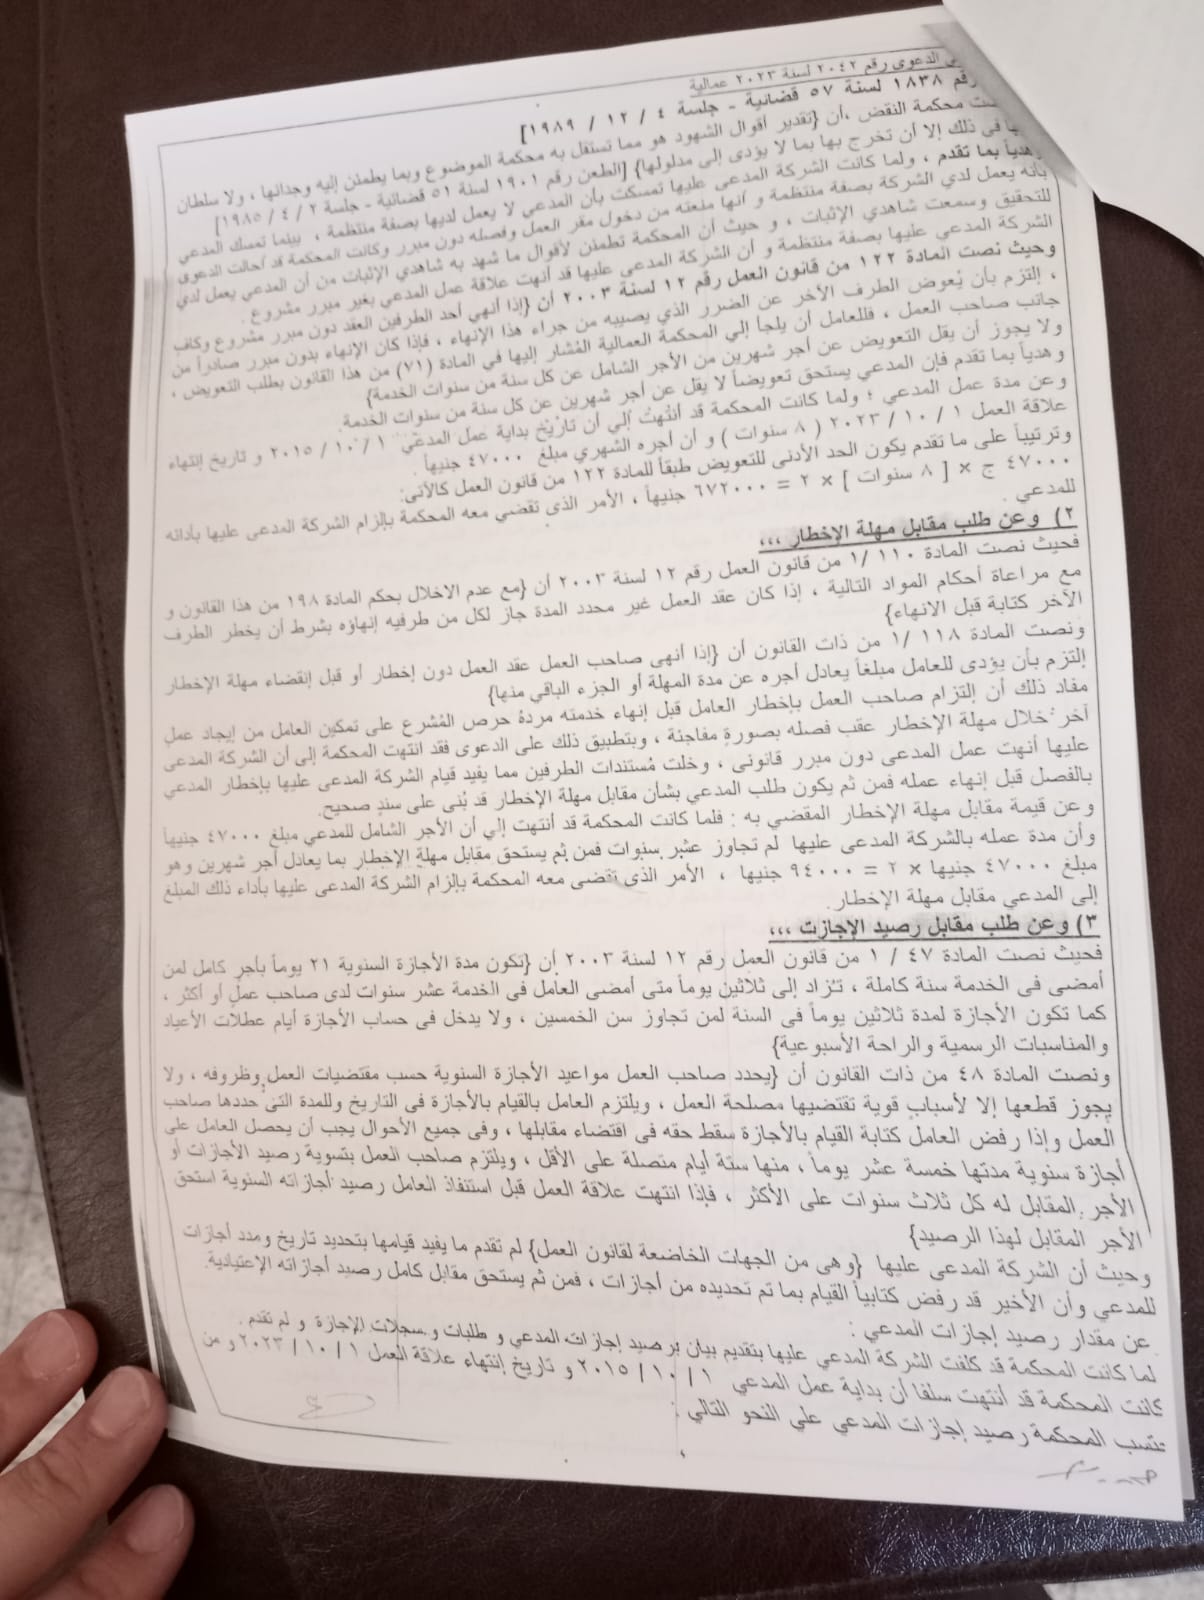 الدعوى رقم ٢٠٤٢ لسنة ٢٠٢٣ عمالية
رقم ١٨٣٨ لسنة ٥٧ قضائية - جلسة ٤ / ١٢ / ١٩٨٩]
محكمة النقض ،أن {تقدير أقوال الشهود هو مما تستقل به محكمة الموضوع وبما يطمئن إليه وجدانها ، ولا سلطان
فى ذلك إلا أن تخرج بها بما لا يؤدى إلى مدلولها} [الطعن رقم ١٩٠١ لسنة ٥١ قضائية - جلسة ٢ / ٤ / ١٩٨٥]
وهدياً بما تقدم ، ولما كانت الشركة المدعى عليها تمسكت بأن المدعي لا يعمل لديها بصفة منتظمة ، بينما تمسك المدعي
بأنه يعمل لدي الشركة بصفة منتظمة و أنها منعته من دخول مقر العمل وفصله دون مبرر وكانت المحكمة قد أحالت الدعوى
للتحقيق وسمعت شاهدي الإثبات ، و حيث أن المحكمة تطمئن لأقوال ما شهد به شاهدي الإثبات من أن المدعي يعمل لدي
الشركة المدعى عليها بصفة منتظمة و أن الشركة المدعى عليها قد أنهت علاقة عمل المدعي بغير مبرر مشروع .
وحيث نصت المادة ١٢٢ من قانون العمل رقم ١٢ لسنة ٢٠٠٣ أن {إذا أنهي أحد الطرفين العقد دون مبرر مشروع وكاف
، إلتزم بأن يُعوض الطرف الأخر عن الضرر الذي يصيبه من جراء هذا الإنهاء ، فإذا كان الإنهاء بدون مبرر صادراً من
جانب صاحب العمل ، فللعامل أن يلجأ إلي المحكمة العمالية المُشار إليها في المادة (٧١) من هذا القانون بطلب التعويض ،
ولا يجوز أن يقل التعويض عن أجر شهرين من الأجر الشامل عن كل سنة من سنوات الخدمة}
و هدياً بما تقدم فإن المدعي يستحق تعويضاً لا يقل عن أجر شهرين عن كل سنة من سنوات الخدمة.
وعن مدة عمل المدعي ؛ ولما كانت المحكمة قد أنتهتُ إلي أن تاريخ بداية عمل المدعي ١ / ١٠ / ٢٠١٥ و تاريخ إنتهاء
علاقة العمل ١ / ١٠ / ٢٠٢٣ ( ٨ سنوات ) و أن أجره الشهري مبلغ ٤٧٠٠٠ جنيهاً .
وترتيباً على ما تقدم يكون الحد الأدنى للتعويض طبقاً للمادة ١٢٢ من قانون العمل كالآتى:
٤٧٠٠٠ ج × [ ٨ سنوات ] × ٢ = ٦٧٢٠٠٠ جنيهاً ، الأمر الذى تقضي معه المحكمة بإلزام الشركة المدعى عليها بأدائه
للمدعي .
٢) وعن طلب مقابل مهلة الإخطار ،،،
فحيث نصت المادة ١١٠ /١ من قانون العمل رقم ١٢ لسنة ٢٠٠٣ أن {مع عدم الاخلال بحكم المادة ١٩٨ من هذا القانون و
مع مراعاة أحكام المواد التالية ، إذا كان عقد العمل غير محدد المدة جاز لكل من طرفيه إنهاؤه بشرط أن يخطر الطرف
الآخر كتابة قبل الانهاء}
ونصت المادة ١١٨ /١ من ذات القانون أن {إذا أنهى صاحب العمل عقد العمل دون إخطار أو قبل إنقضاء مهلة الإخطار
إلتزم بأن يؤدى للعامل مبلغاً يعادل أجره عن مدة المهلة أو الجزء الباقي منها}
مفاد ذلك أن إلتزام صاحب العمل بإخطار العامل قبل إنهاء خدمته مردهُ حرص المُشرع على تمكين العامل من إيجاد عملٍ
آخر خلال مهلة الإخطار عقب فصله بصورةٍ مفاجئة ، وبتطبيق ذلك على الدعوى فقد انتهت المحكمة إلى أن الشركة المدعى
عليها أنهت عمل المدعى دون مبرر قانونى ، وخلت مُستندات الطرفين مما يفيد قيام الشركة المدعى عليها بإخطار المدعي
بالفصل قبل إنهاء عمله فمن ثم يكون طلب المدعي بشأن مقابل مهلة الإخطار قد بُنى على سندٍ صحيح.
وعن قيمة مقابل مهلة الإخطار المقضي به : فلما كانت المحكمة قد أنتهت إلي أن الأجر الشامل للمدعي مبلغ ٤٧٠٠٠ جنيهاً
وأن مدة عمله بالشركة المدعى عليها لم تجاوز عشر سنوات فمن ثم يستحق مقابل مهلة الإخطار بما يعادل أجر شهرين وهو
مبلغ ٤٧٠٠٠ جنيها × ٢ = ٩٤٠٠٠ جنيها ، الأمر الذى تقضى معه المحكمة بإلزام الشركة المدعى عليها بأداء ذلك المبلغ
إلى المدعي مقابل مهلة الإخطار.
٣) وعن طلب مقابل رصيد الإجازت ،،،
فحيث نصت المادة ٤٧ / ١ من قانون العمل رقم ١٢ لسنة ٢٠٠٣ أن {تكون مدة الأجازة السنوية ٢١ يوماً بأجرٍ كامل لمن
أمضى فى الخدمة سنة كاملة ، تزاد إلى ثلاثين يوماً متى أمضى العامل فى الخدمة عشر سنوات لدى صاحب عملٍ أو أكثر ،
كما تكون الأجازة لمدة ثلاثين يوماً فى السنة لمن تجاوز سن الخمسين ، ولا يدخل فى حساب الأجازة أيام عطلات الأعياد
والمناسبات الرسمية والراحة الأسبوعية}
ونصت المادة ٤٨ من ذات القانون أن {يحدد صاحب العمل مواعيد الأجازة السنوية حسب مقتضيات العمل وظروفه ، ولا
يجوز قطعها إلا لأسبابٍ قوية تقتضيها مصلحة العمل ، ويلتزم العامل بالقيام بالأجازة فى التاريخ وللمدة التى حددها صاحب
العمل وإذا رفض العامل كتابة القيام بالأجازة سقط حقه فى اقتضاء مقابلها ، وفى جميع الأحوال يجب أن يحصل العامل على
أجازة سنوية مدتها خمسة عشر يوماً ، منها ستة أيام متصلة على الأقل ، ويلتزم صاحب العمل بتسوية رصيد الأجازات أو
الأجر المقابل له كل ثلاث سنوات على الأكثر ، فإذا انتهت علاقة العمل قبل استنفاذ العامل رصيد أجازاته السنوية استحق
الأجر المقابل لهذا الرصيد}
وحيث أن الشركة المدعى عليها {وهى من الجهات الخاضعة لقانون العمل} لم تقدم ما يفيد قيامها بتحديد تاريخ ومدد أجازات
للمدعي وأن الأخير قد رفض كتابياً القيام بما تم تحديده من أجازات ، فمن ثم يستحق مقابل كامل رصيد أجازاته الإعتيادية.
عن مقدار رصيد إجازات المدعي :
لما كانت المحكمة قد كلفت الشركة المدعي عليها بتقديم بيان برصيد إجازات المدعي و طلبات و سجلات الإجازة و لم تقدم .
كانت المحكمة قد أنتهت سلفا أن بداية عمل المدعي ١ / ١٠ / ٢٠١٥ و تاريخ إنتهاء علاقة العمل ١ / ١٠ / ٢٠٢٣ و من
تحتسب المحكمة رصيد إجازات المدعي علي النحو التالي :